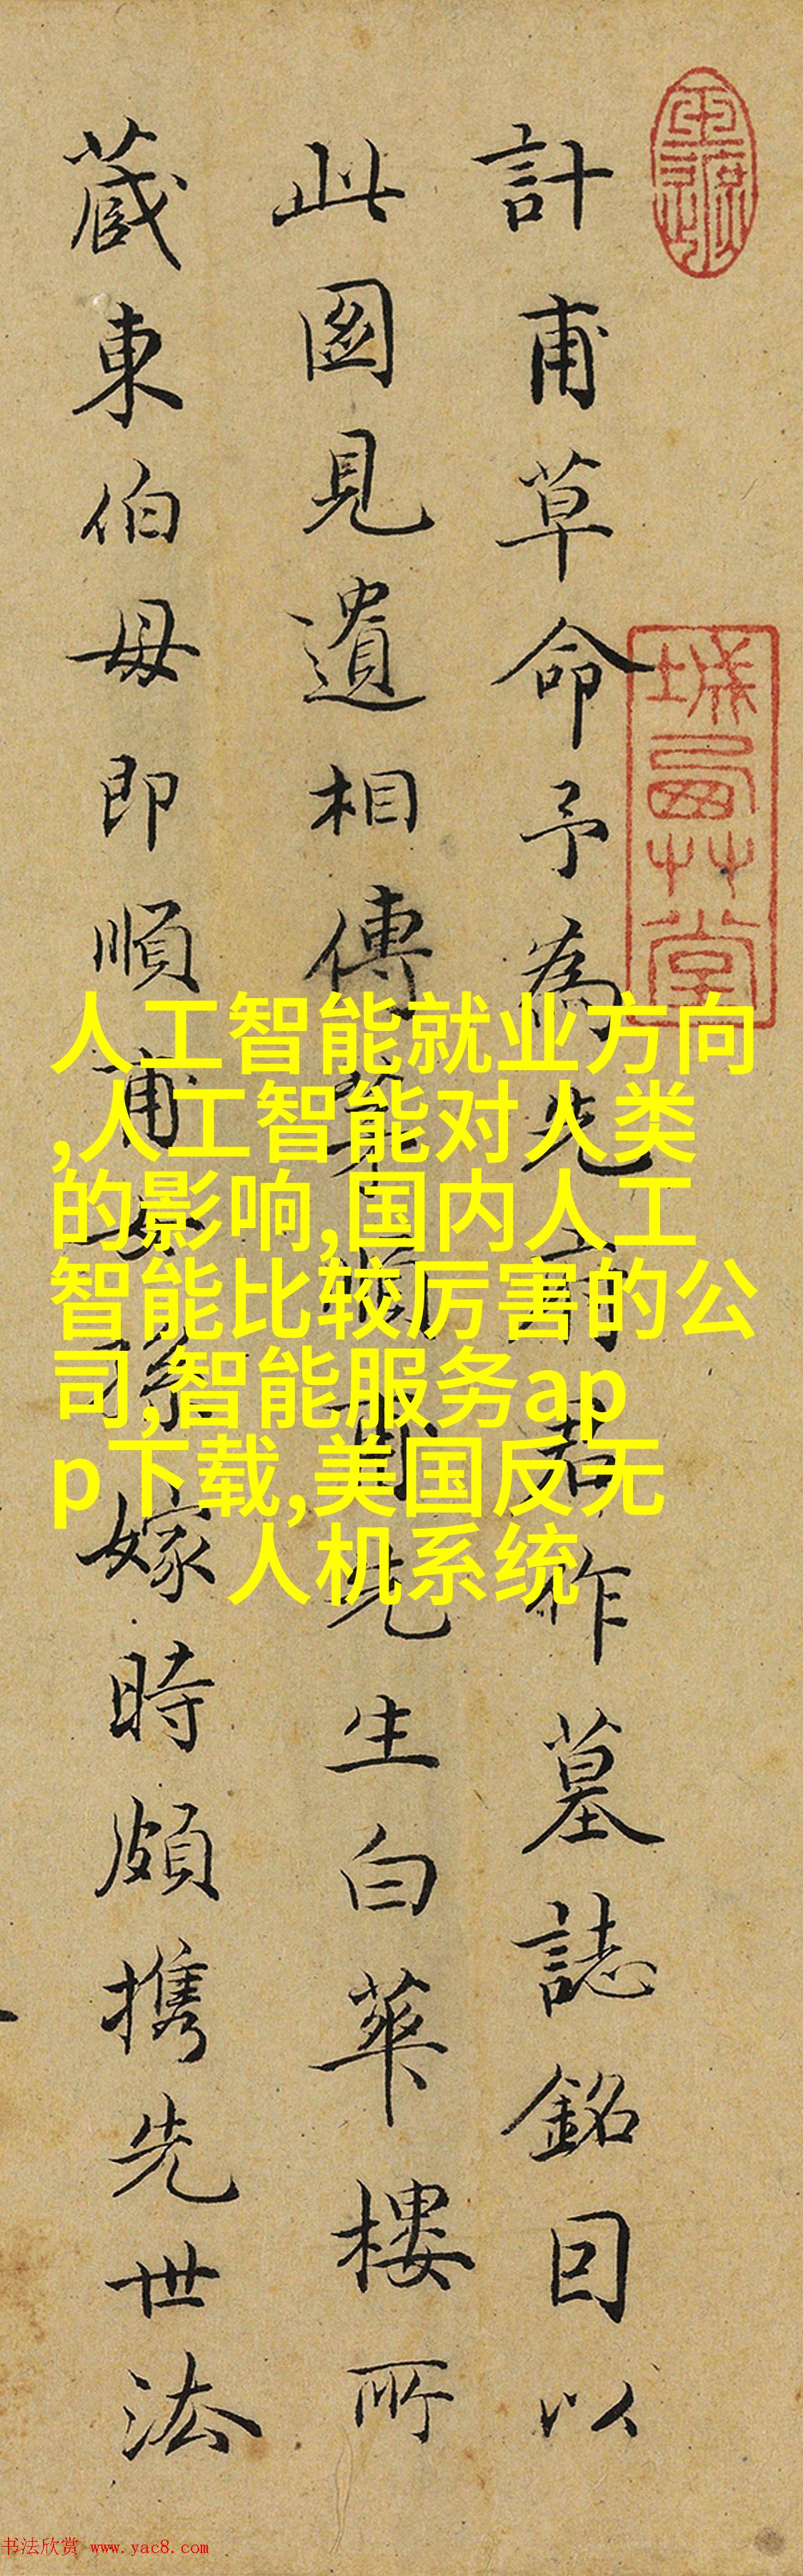 計甫草命予為先府君作墓誌銘因以
此圖見遺相傳是周前先生白華樓所
蔵東伯母即順甫女孫嫁時頗携先世法
人工智能就业方向
,人工智能对人类
的影响,国内人工
智能比较厉害的公
司,智能服务ap
p下载,美国反无
人机系统
书法欣赏 www.yac8.com